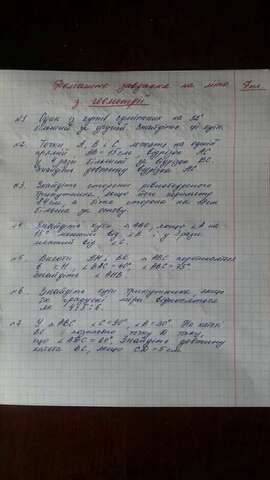 Домашнє завдання на літо 7 кл.
з геометрії
№1. Один з кутів суміжних на
більший за другий. Знайдіть ці кути.
№2. Точки А, В і С лежать на одній
прямій АВ = см, відрізок АС
у рази більший за відрізок ВС.
Знайдіть довжину відрізка АС
№3. Знайдіть сторони рівнобедреного
трикутника, якщо його периметр
см, а бічна сторона на см
більша за основу.
№4. Знайдіть кути △АВС, якщо ∠А на
менший від ∠В і у рази
менший від ∠С.
№5. Висоти і △АВС перетинаються
в т. Н, ∠ВАС = °, ∠АВС = °
Знайдіть ∠АНВ.
№6. Знайдіть кути трикутника якщо
їх градусні міри відносяться
як
№7. У △АВС ∠С = 90°, ∠А = 30°. На катеті
ВС позначено точку D таку,
що ∠ = 60°. Знайдіть довжину
катета ВС, якщо СD = 5 см.